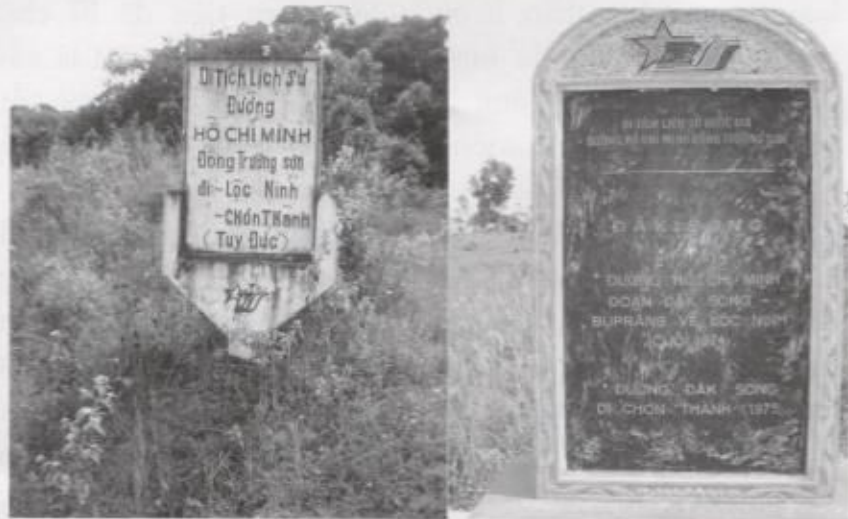 Di Tích Lịch Sử
Đường
HỒ CHÍ MINH
Đông Trường sơn
đi - Lộc Ninh
- CHơn THành
(Tuy Đức)
DI TÍCH LỊCH SỬ QUỐC GIA
ĐƯỜNG HỒ CHÍ MINH ĐÔNG TRƯỜNG SƠN
* ĐƯỜNG HỒ CHÍ MINH
ĐOẠN ĐĂK SONG -
BUPRĂNG VỀ LỘC NINH
* ĐƯỜNG ĐĂK SONG
ĐI CHƠN THÀNH (1975